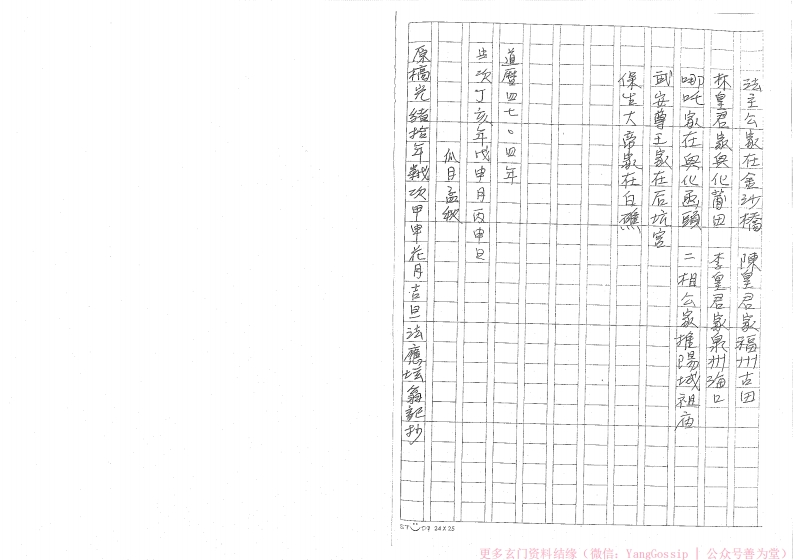 法主公家在金沙橋　陳皇君家福州古田
林皇君家興化莆田　李皇君家泉州海口
哪吒家在興化函頭　二相公家推陽城祖庙
武安尊王家在石坑宮
保生大帝家在白礁
道曆四七〇四年
歲次丁亥年戊申月丙申日
瓜月孟秋
原稿光緒拾年歲次甲申花月吉旦法應坛翁記抄
24X25
更多玄门资料结缘（微信：YangGossip | 公众号善为堂）